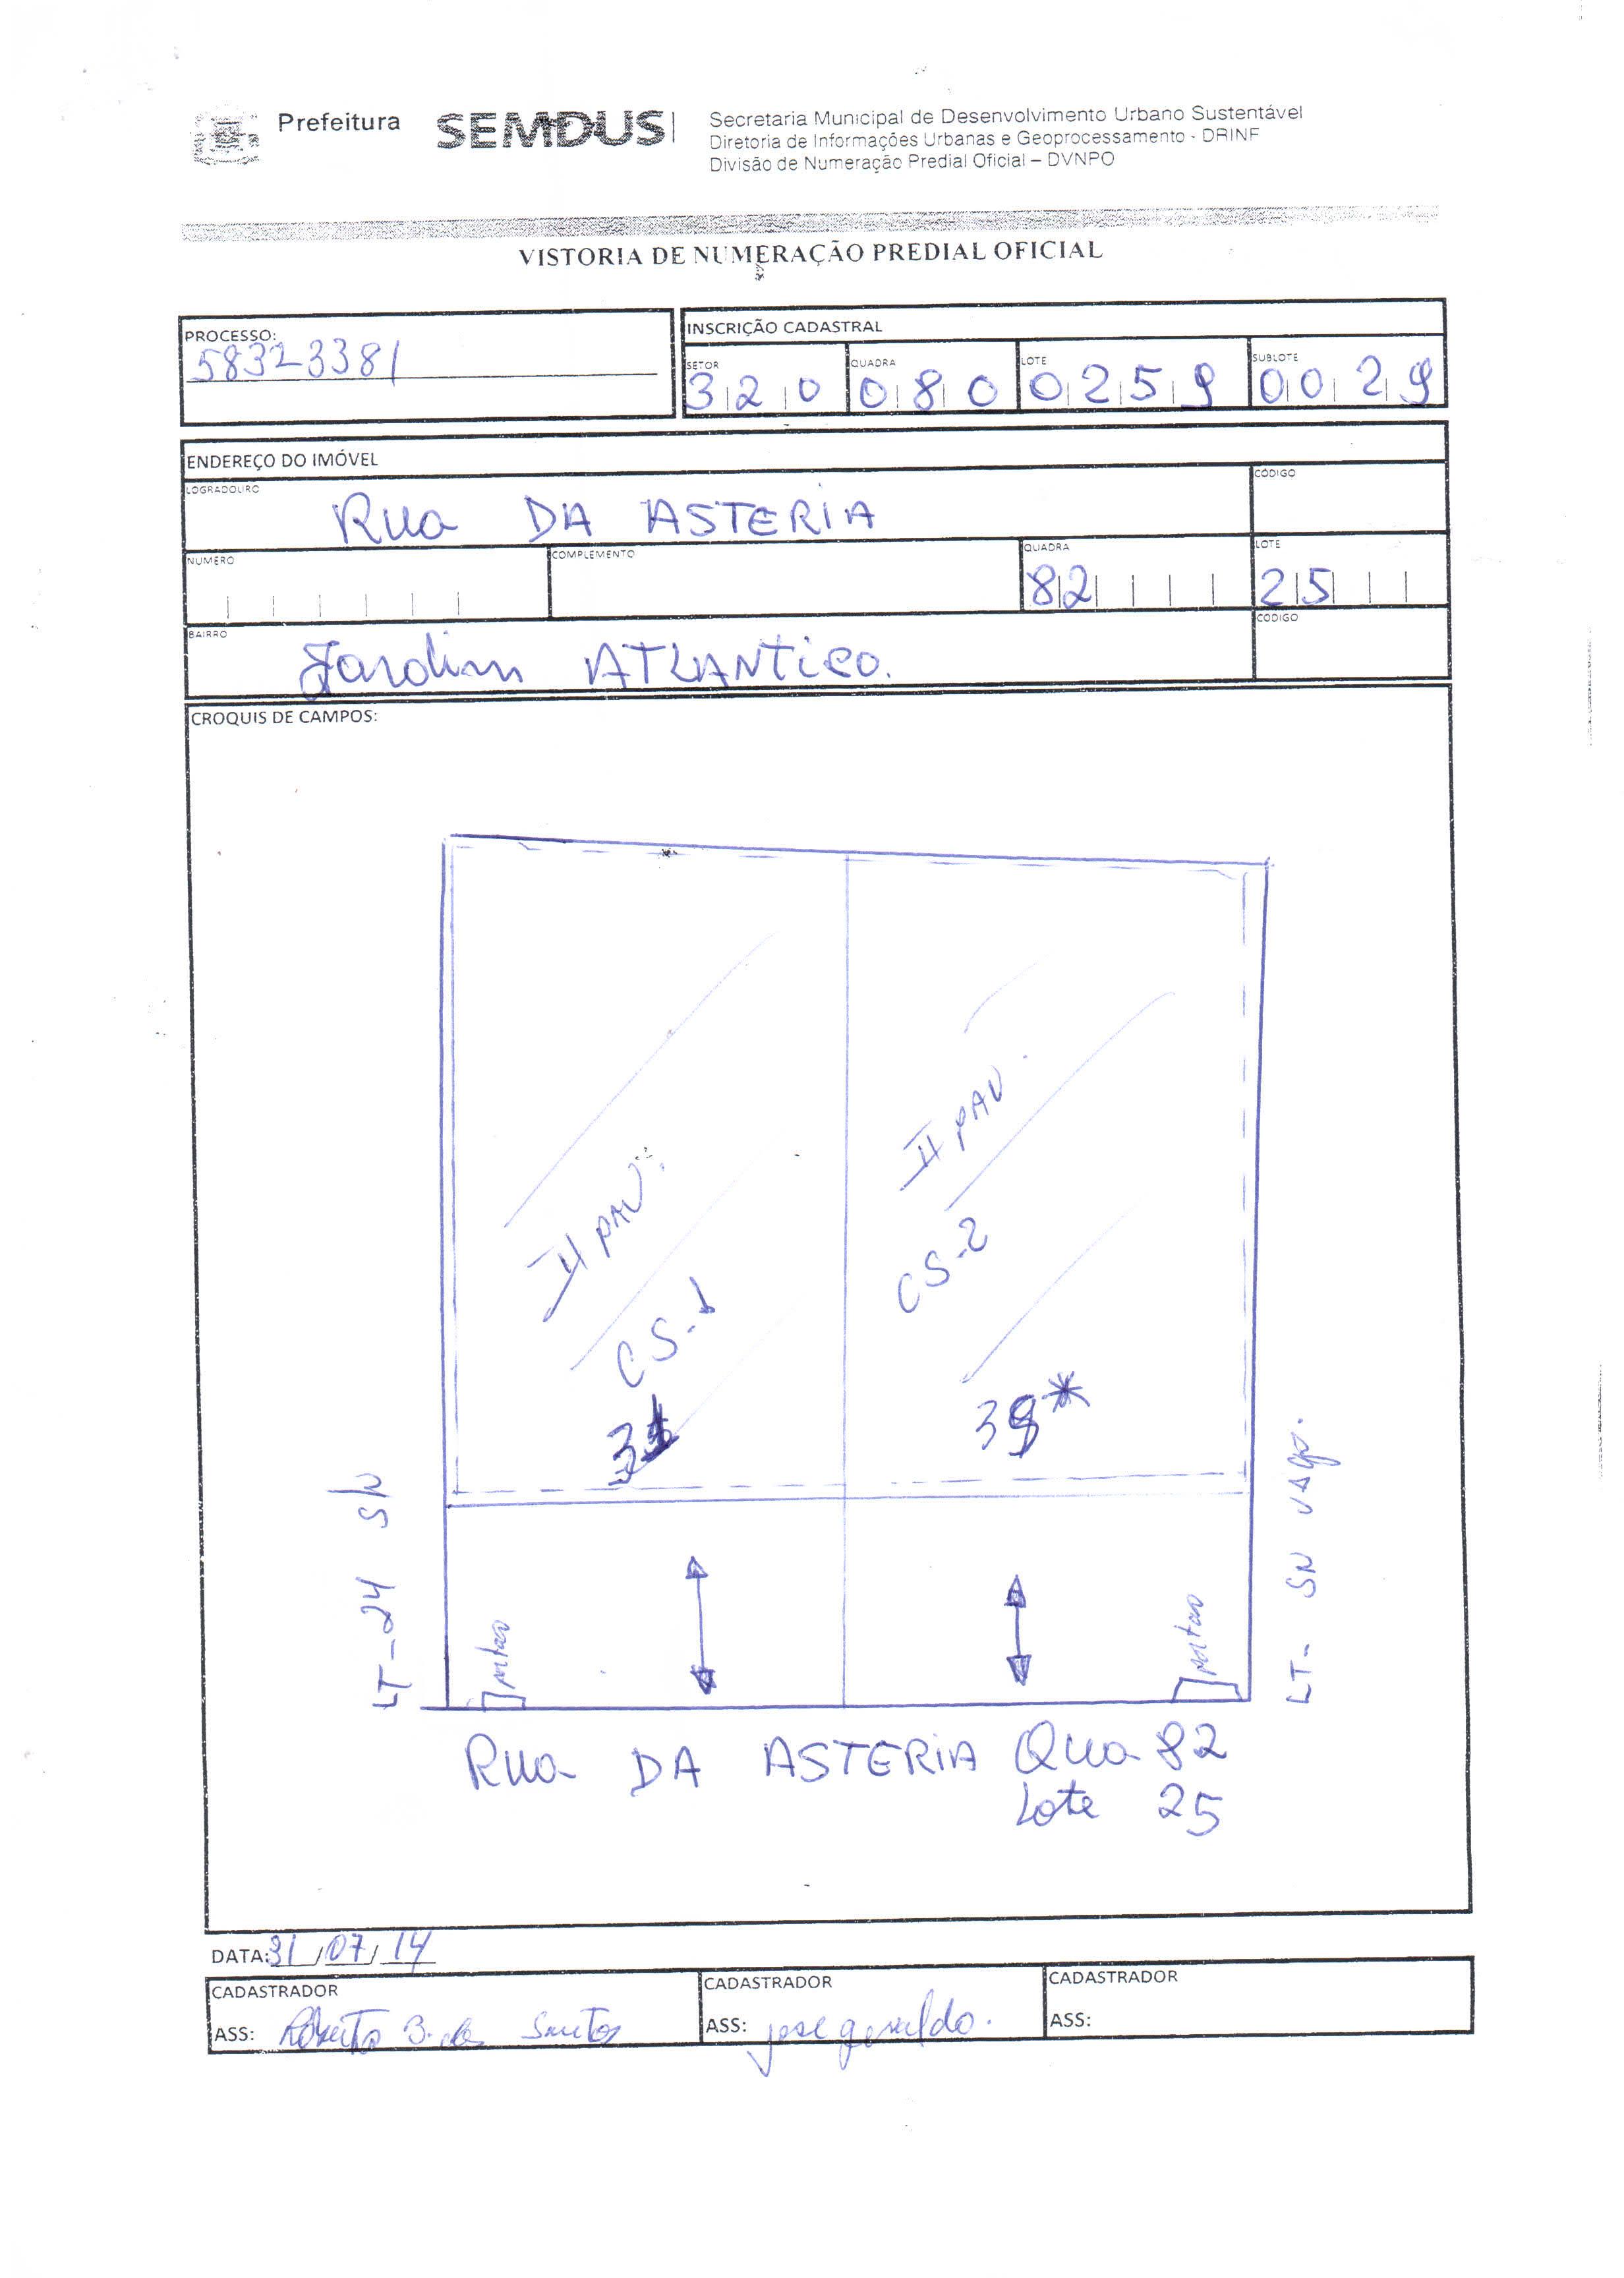 Prefeitura SEMDUS
Secretaria Municipal de Desenvolvimento Urbano Sustentável
Diretoria de Informações Urbanas e Geoprocessamento - DRINF
Divisão de Numeração Predial Oficial – DVNPO
VISTORIA DE NUMERAÇÃO PREDIAL OFICIAL
PROCESSO:
58323381
INSCRIÇÃO CADASTRAL
SETOR QUADRA LOTE SUBLOTE
320 080 0259 0029
ENDEREÇO DO IMÓVEL
LOGRADOURO CÓDIGO
Rua DA ASTERIA
NUMERO COMPLEMENTO QUADRA LOTE
82 25
BAIRRO CÓDIGO
Jardim ATLANTICO.
CROQUIS DE CAMPOS:
II PAV.
II PAV.
CS-1
CS-2
LT-24 S/N
LT- SN VAgo.
portao
portao
Rua DA ASTERIA Qua 82
Lote 25
DATA: 31/07/14
CADASTRADOR CADASTRADOR CADASTRADOR
ASS: Roberto B. dos Santos ASS: jose geraldo. ASS: